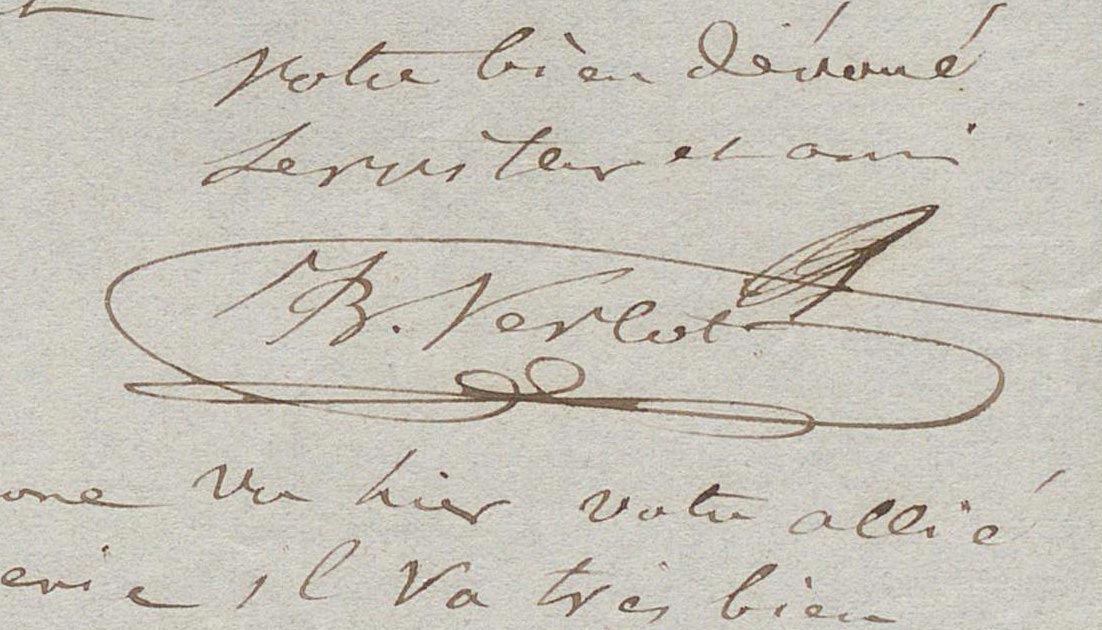 votre bien dévoué
serviteur et ami
B. Verlot
vu hier votre allié
il va très bien